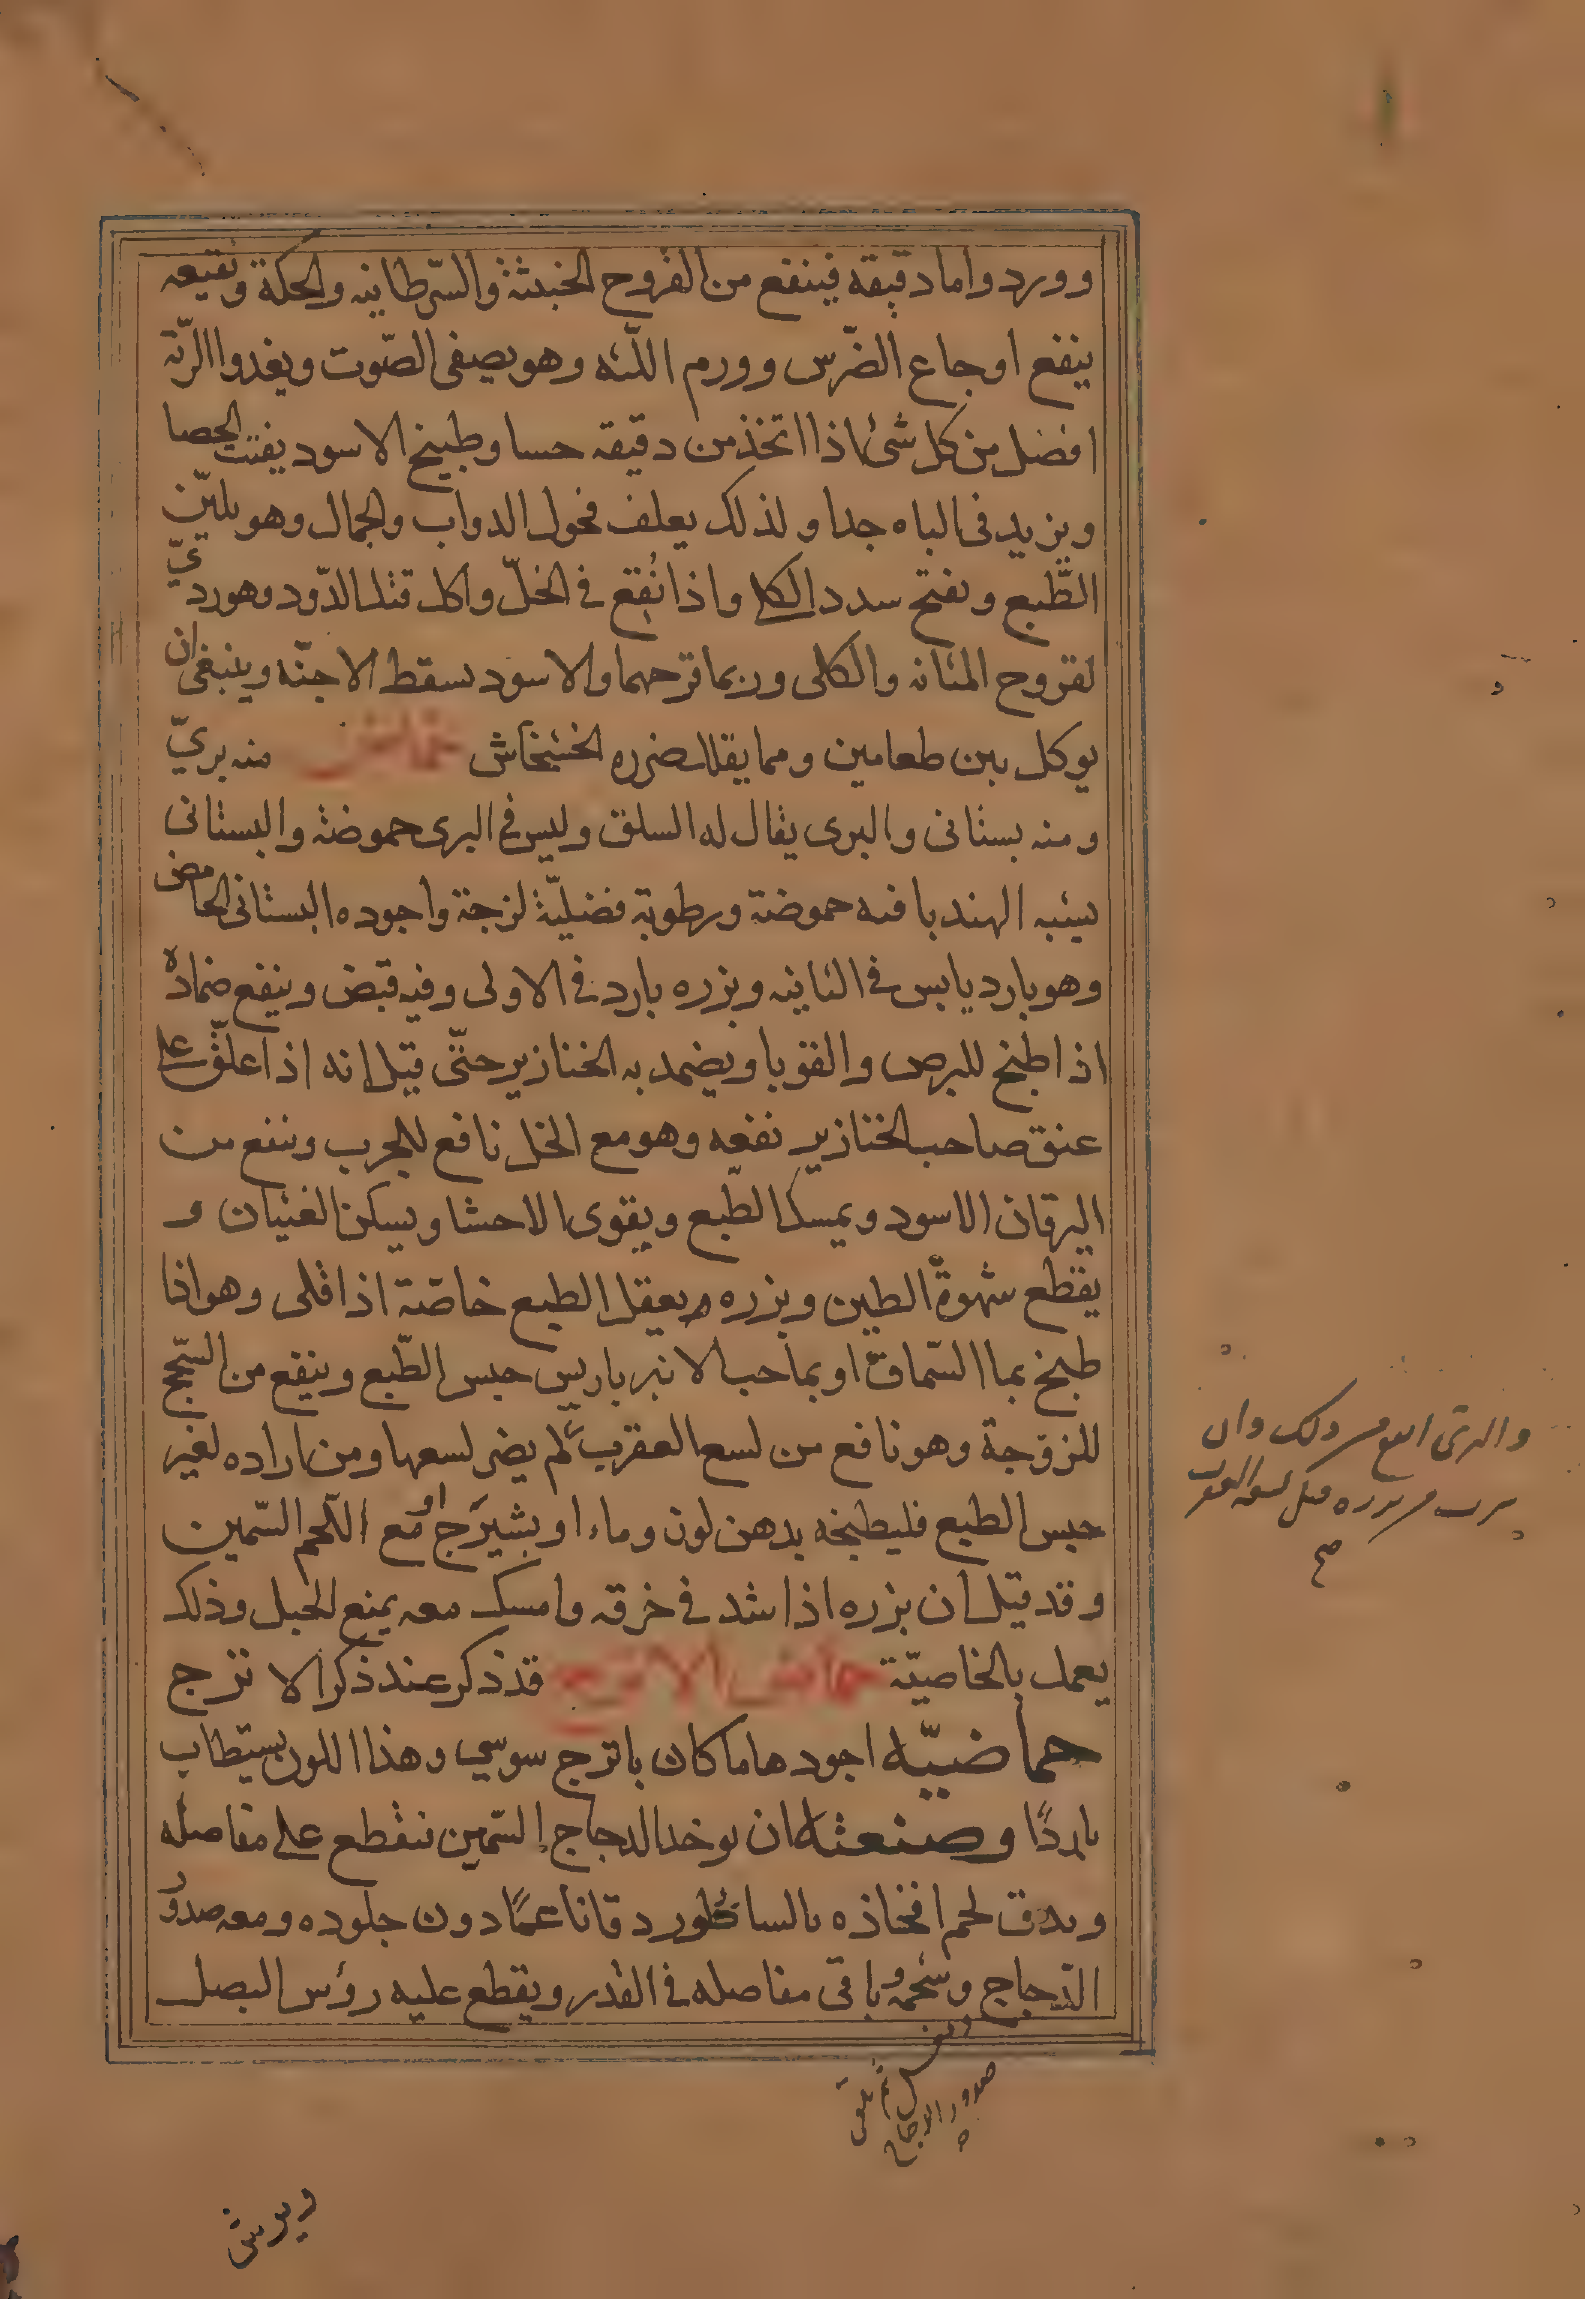 وورد واما دقيقه فينفع من القروح الخبيثة والسّرطانيه والحكة ونقيعه
ينفع اوجاع الضّرس وورم اللّثه وهو يصفى الصّوت ويغدوا الرّئة
افضل من كل شئ اذا اتخذ من دقيقه حسا وطبيخ الاسود يفتت الحصا
ويزيد فى الباه جدا ولذلك يعلف فحول الدواب والجمال وهو يليّن
الطّبع ويفتح سدد الكلا واذا نُقِع في الخلّ واكل قتل الدّود وهو رديّ
لقروح المثانه والكلى وربما قرحهما والاسود يسقط الاجنّه وينبغى ان
يوكل بين طعامين ومما يقلل ضرره الخشخاش حماض منه بريّ
ومنه بستانى والبرى يقال له السلق وليس في البرى حموضة والبستانى
يشبه الهندبا فيه حموضة ورطوبة فضليّة لزجة واجوده البستانى الحامض
وهو بارد يابس فى الثانيه وبزره بارد فى الاولى وفيه قبض وينفع ضماده
اذا طبخ للبرص والقوبا ويضمد به الخنازير حتّى قيل انه اذا علّق على
عنق صاحب الخنازير نفعه وهو مع الخل نافع للجرب وينفع من
اليرقان الاسود ويمسك الطّبع ويقوى الاحشا ويسكن الغثيان و
يقطع شهوة الطين وبزره يعقل الطبع خاصّة اذا قلى وهو اذا
طبخ بما السّماق او بما حب الانبرباريس حبس الطّبع وينفع من السّحج
للزوجة وهو نافع من لسع العقرب لم يضر لسعها ومن اراده لغير
حبس الطبع فليطبخه بدهن لوز وماء او بشيرَج او مع اللّحم السّمين
وقد قيل ان بزره اذا شد في خرقه وامسك معه يمنع الحبل وذلك
يعمل بالخاصيّة حماض الاترج قد ذكر عند ذكر الاترج
حماضيّه اجودها ما كان باترج سوسي وهذا اللون يستطاب
باردًا وصنعته ان يوخد الدجاج السّمين تنقطع على مفاصله
ويدق لحم افخاذه بالساطور دقا ناعمًا دون جلوده ومعه صدور
الدّجاج وشحمه وباقى مفاصله في القدر ويقطع عليه رؤس البصل
وان
من بزره قبل لسع العقرب
صح
صدور الدجاج
ويرش